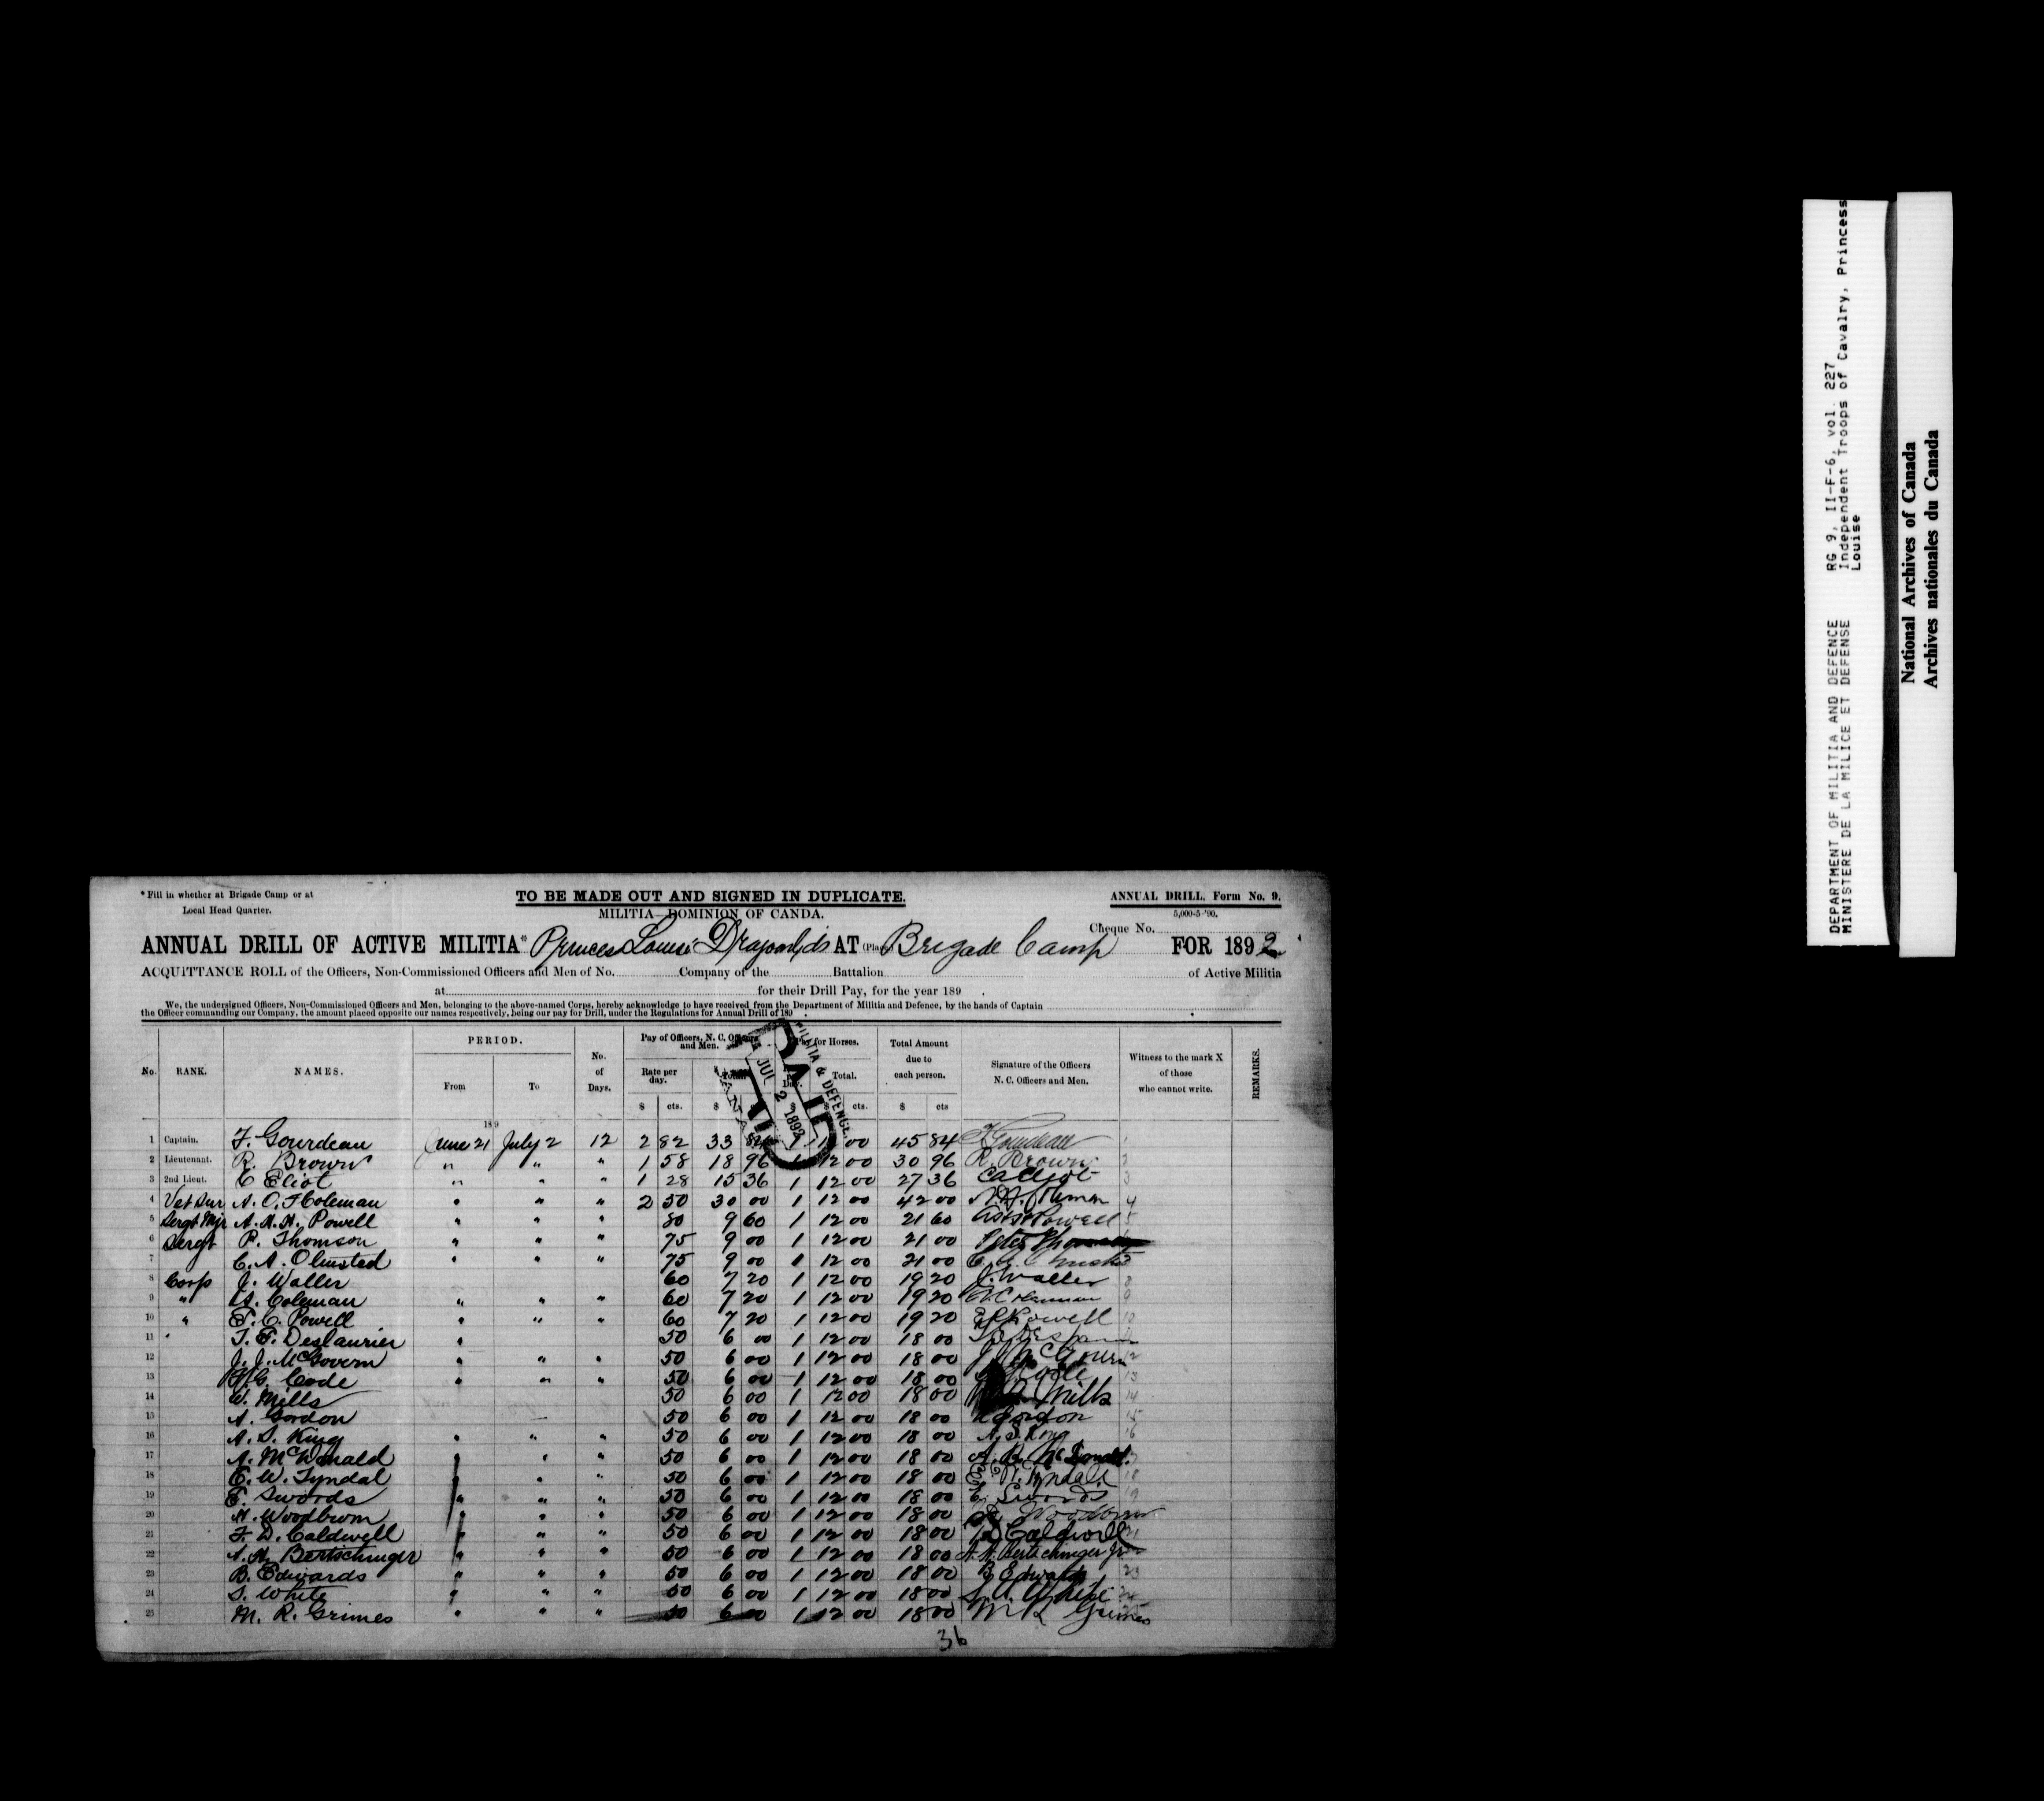 * Fill in whether at Brigade Camp or at
Local Head Quarter.
TO BE MADE OUT AND SIGNED IN DUPLICATE.
MILITIA—DOMINION OF CANDA.
ANNUAL DRILL, Form No. 9.
5,000-5-'90.
Cheque No.
ANNUAL DRILL OF ACTIVE MILITIA* Princess Louise AT (Place) Brigade Camp FOR 1892
ACQUITTANCE ROLL of the Officers, Non-Commissioned Officers and Men of No. Company of the Battalion of Active Militia
at for their Drill Pay, for the year 189 .
We, the undersigned Officers, Non-Commissioned Officers and Men, belonging to the above-named Corps, hereby acknowledge to have received from the Department of Militia and Defence, by the hands of Captain
the Officer commanding our Company, the amount placed opposite our names respectively, being our pay for Drill, under the Regulations for Annual Drill of 189 .
No. RANK. NAMES. PERIOD. From To No. of Days. Pay of Officers, N. C. Officers and Men. Rate per day. Total. Pay for Horses. Day. Total. Total Amount due to each person. Signature of the Officers N. C. Officers and Men. Witness to the mark X of those who cannot write. REMARKS.
$ cts. $ $ $ cts. $ cts
189
PAID
JUL 2 1892
MILITIA & DEFENCE
1 Captain. F. Gourdeau June 21 July 2 12 2 82 33 84 1 12 00 45 84 F Gourdeau 1
2 Lieutenant. R. Brown " " " 1 58 18 96 1 12 00 30 96 R. Brown 2
3 2nd Lieut. C Eliot " " " 1 28 15 36 1 12 00 27 36 C A Eliot 3
4 Vet Sur A. O. F Coleman " " " 2 50 30 00 1 12 00 42 00 4
5 Sergt Mjr A. H. H. Powell " " " 80 9 60 1 12 00 21 60 Powell 5
6 Sergt P. Thomson " " " 75 9 00 1 12 00 21 00 Peter
7 C. A. Olmsted " " " 75 9 00 1 12 00 21 00
8 Corps J. Waller 60 7 20 1 12 00 19 20 J. Waller 8
9 " A. Coleman " " " 60 7 20 1 12 00 19 20 A. Coleman 9
10 " E. C. Powell " " " 60 7 20 1 12 00 19 20 E C Powell 10
11 " T. E. Deslaurier " 50 6 00 1 12 00 18 00
12 J. J. McGovern " " " 50 6 00 1 12 00 18 00 J J McGovern 12
13 Code " " " 50 6 00 1 12 00 18 00 Code 13
14 W. Mills 50 6 00 1 12 00 18 00 Mills 14
15 A. Gordon 50 6 00 1 12 00 18 00 A Gordon 15
16 A. S. King " " " 50 6 00 1 12 00 18 00 A. S. King 16
17 A. McDonald " " " 50 6 00 1 12 00 18 00 A. R. McDonald.
18 E. W. Tyndal " " " 50 6 00 1 12 00 18 00 E. W. Tyndale 18
19 E. Swords " " " 50 6 00 1 12 00 18 00 E. Swords 19
20 H. Woodbrom " " " 50 6 00 1 12 00 18 00
21 F. D. Caldwell " " " 50 6 00 1 12 00 18 00 Caldwell 21
22 A. H. Bertschinger " " " 50 6 00 1 12 00 18 00 A. H. Bertschinger Jr
23 B. Edwards " " " 50 6 00 1 12 00 18 00 B Edwards 23
24 S. White " " " 50 6 00 1 12 00 18 00 White 24
25 M. R. Grimes " " " 50 6 00 1 12 00 18 00 M R Grimes
36
DEPARTMENT OF MILITIA AND DEFENCE RG 9, II-F-6, vol. 227
MINISTERE DE LA MILICE ET DEFENSE Independent Troops of Cavalry, Princess
Louise
National Archives of Canada
Archives nationales du Canada